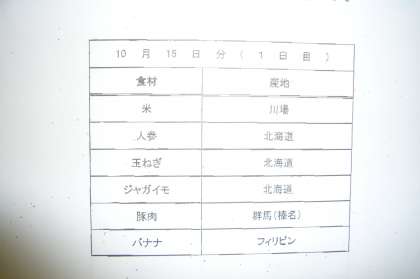 10月15日分(1日目)
食材 産地
米 川場
人参 北海道
玉ねぎ 北海道
ジャガイモ 北海道
豚肉 群馬(榛名)
バナナ フィリピン